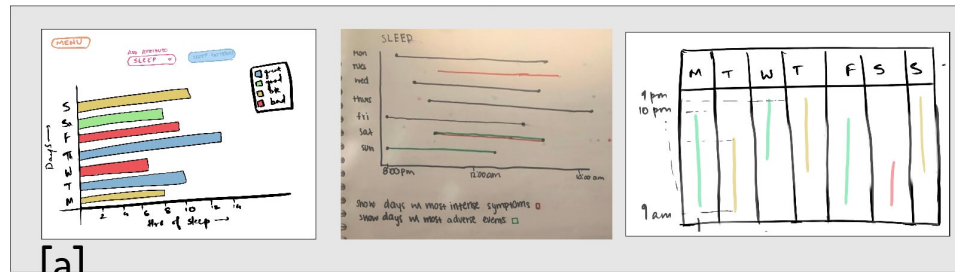 MENU
SLEEP
great
good
ok
bad
Days
S
Sa
F
Th
W
T
M
2 4 6 8 10 12 14
Hrs of sleep
SLEEP
Mon
Tues
wed
thurs
fri
sat
sun
8:00pm 12:00am 10:00am
show days w/ most intense symptoms
show days w/ most adverse events
M T W T F S S
9 pm
10 pm
9 am
[a]